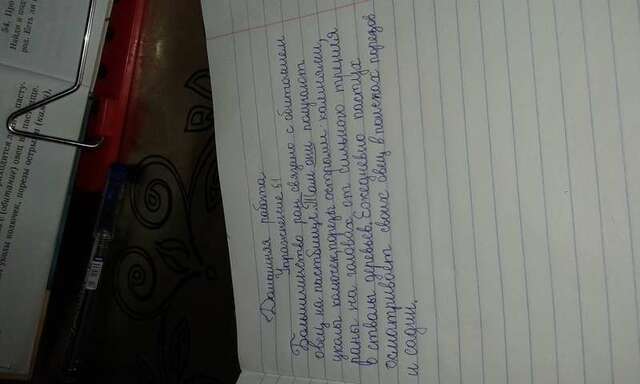 приходится де
(обитание) овец на пастбище.
уколы колючек, порезы острыми (камни),
54. Про
Найди в под
род. Есть ли
Домашняя работа
Упражнение 61
Большинство ран связано с обитанием
овец на пастбище. Там они получают
уколы колючек, порезы острыми камнями,
раны на головах от сильного трения
о стволы деревьев. Ежедневно пастух
осматривает своих овец в поисках порезов
и садин.